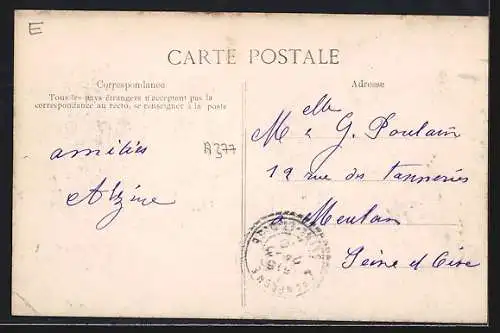 E
CARTE POSTALE
Correspondance
Tous les pays étrangers n'acceptent pas la
correspondance au recto, se renseigner à la poste
Adresse
amitiés
A377
Melle G. Poulain
12 rue des Tanneries
à Meulan
Seine et Oise